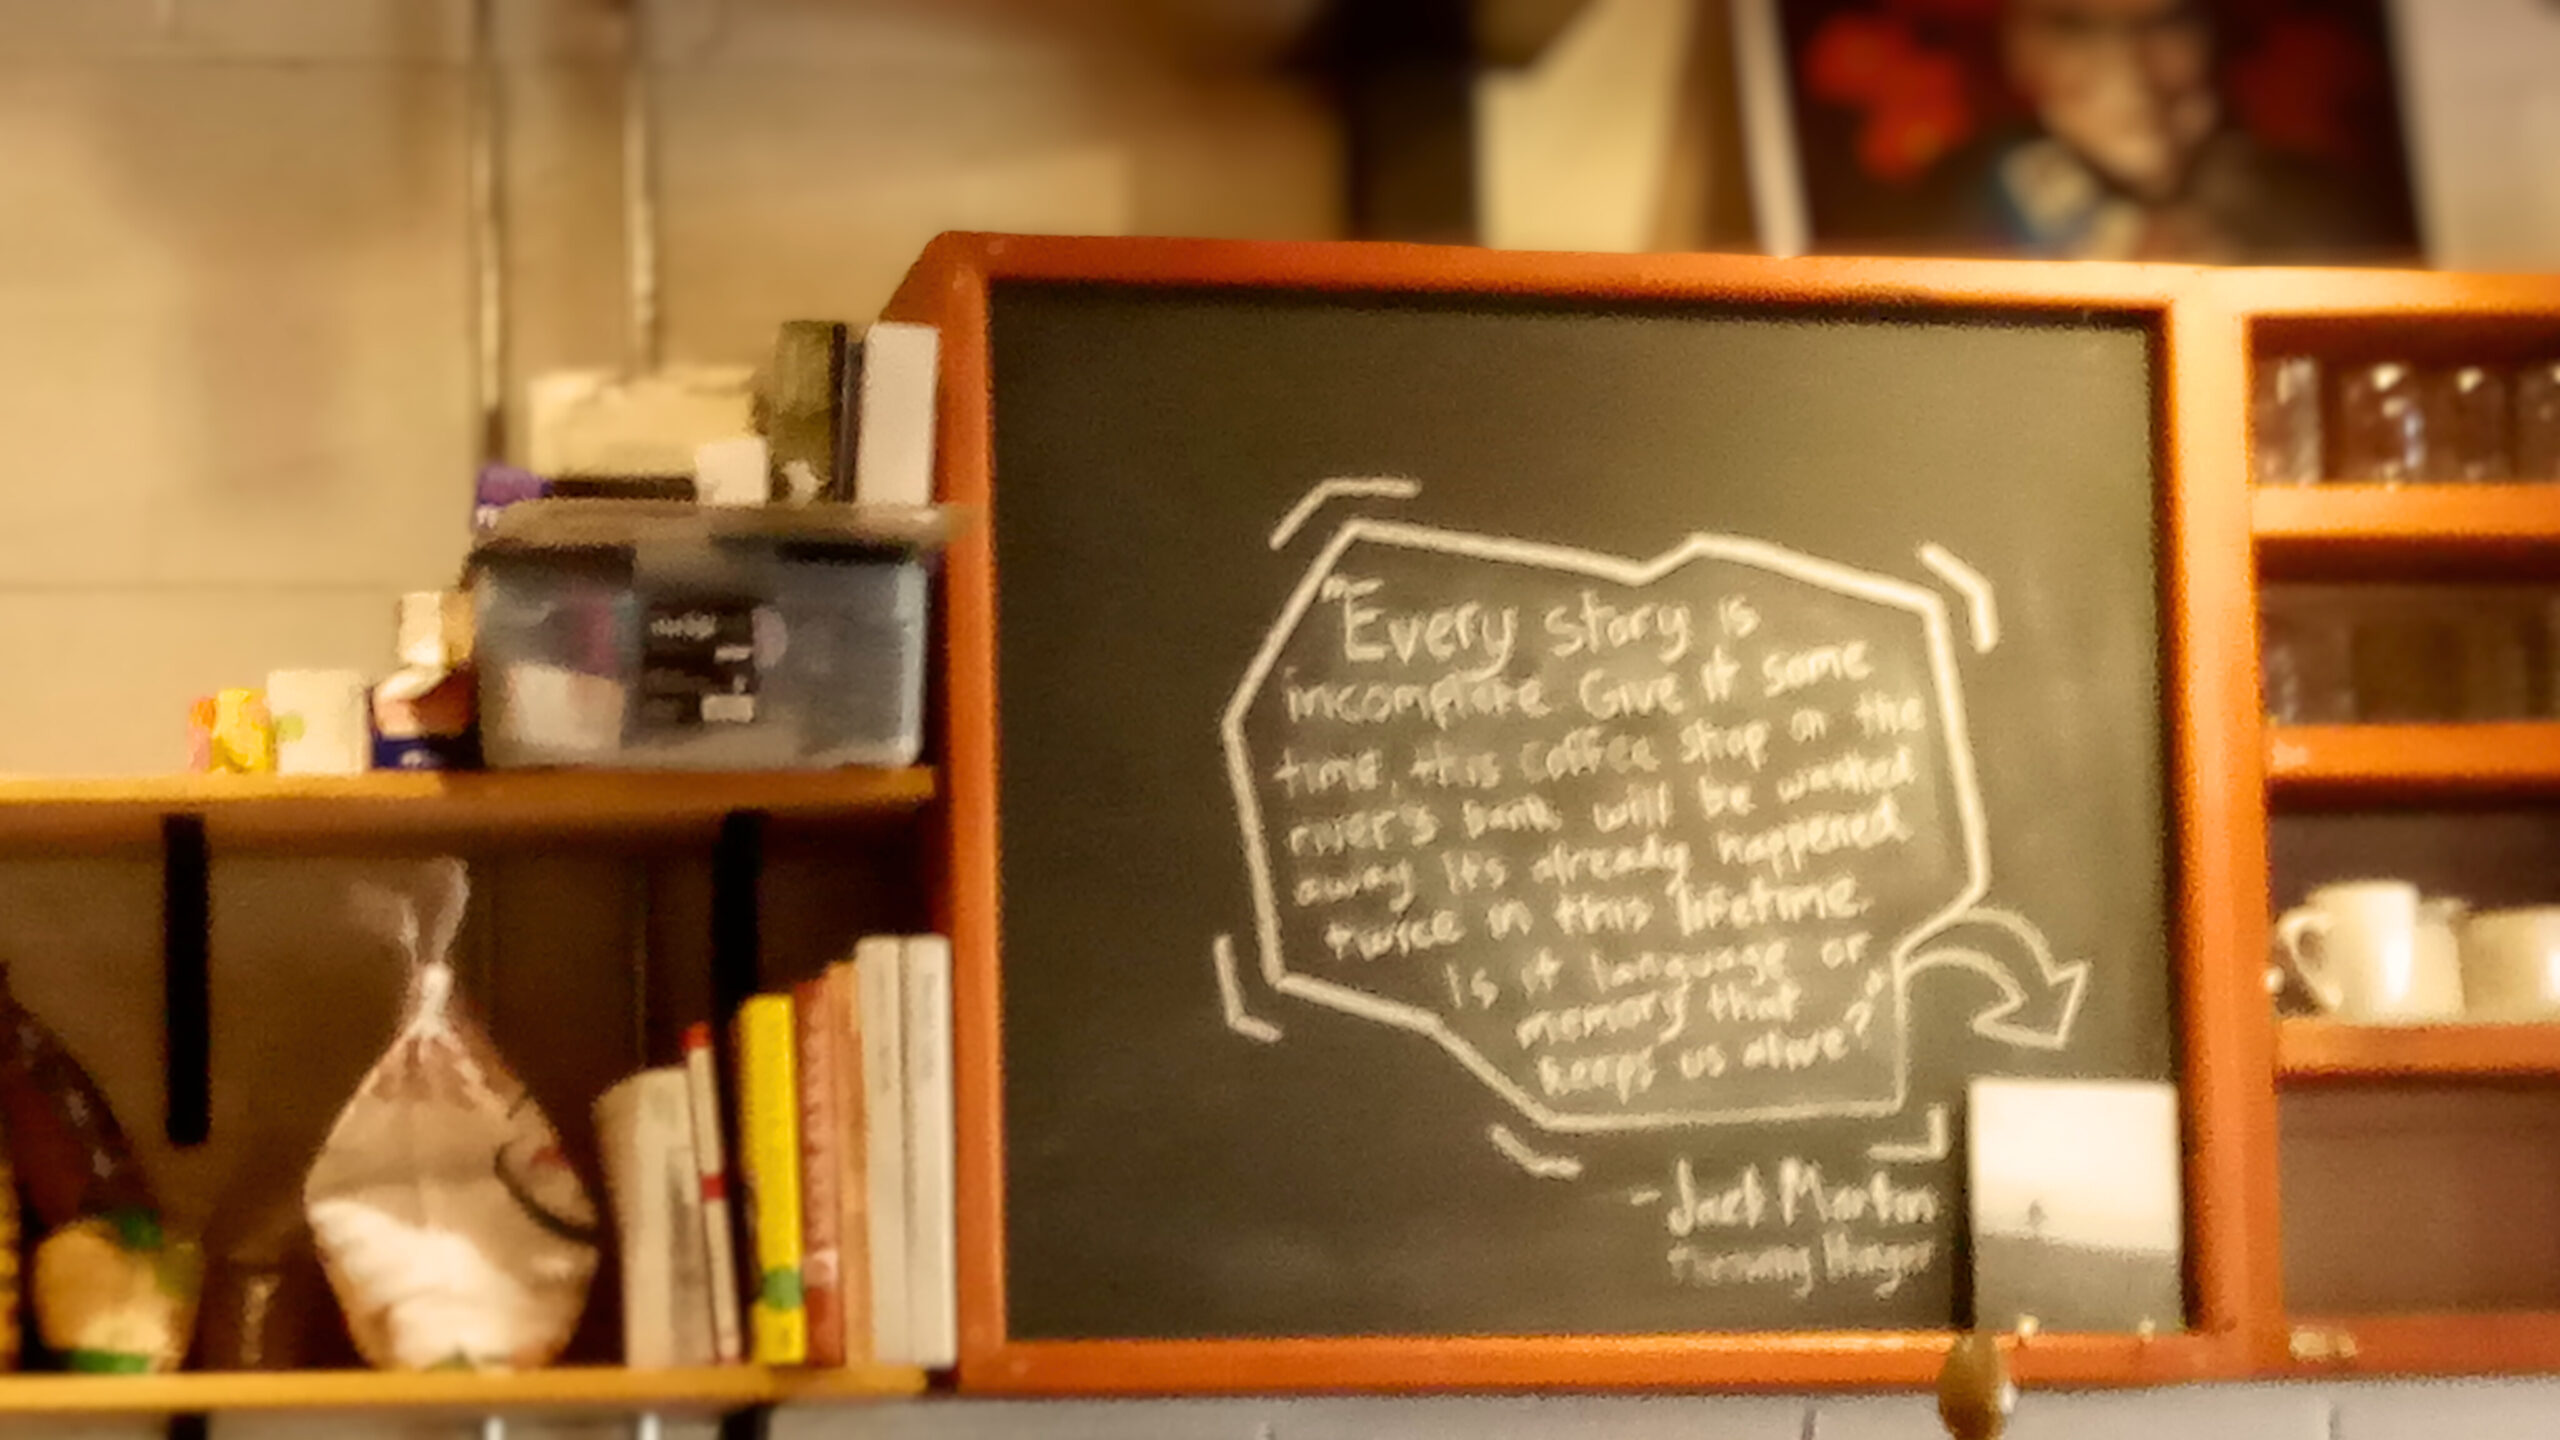 "Every story is
incomplete Give it some
time, this coffee shop on the
river's bank will be washed
away Its already happened
twice in this lifetime.
Is it language or
memory that
keeps us alive?"
- Martin